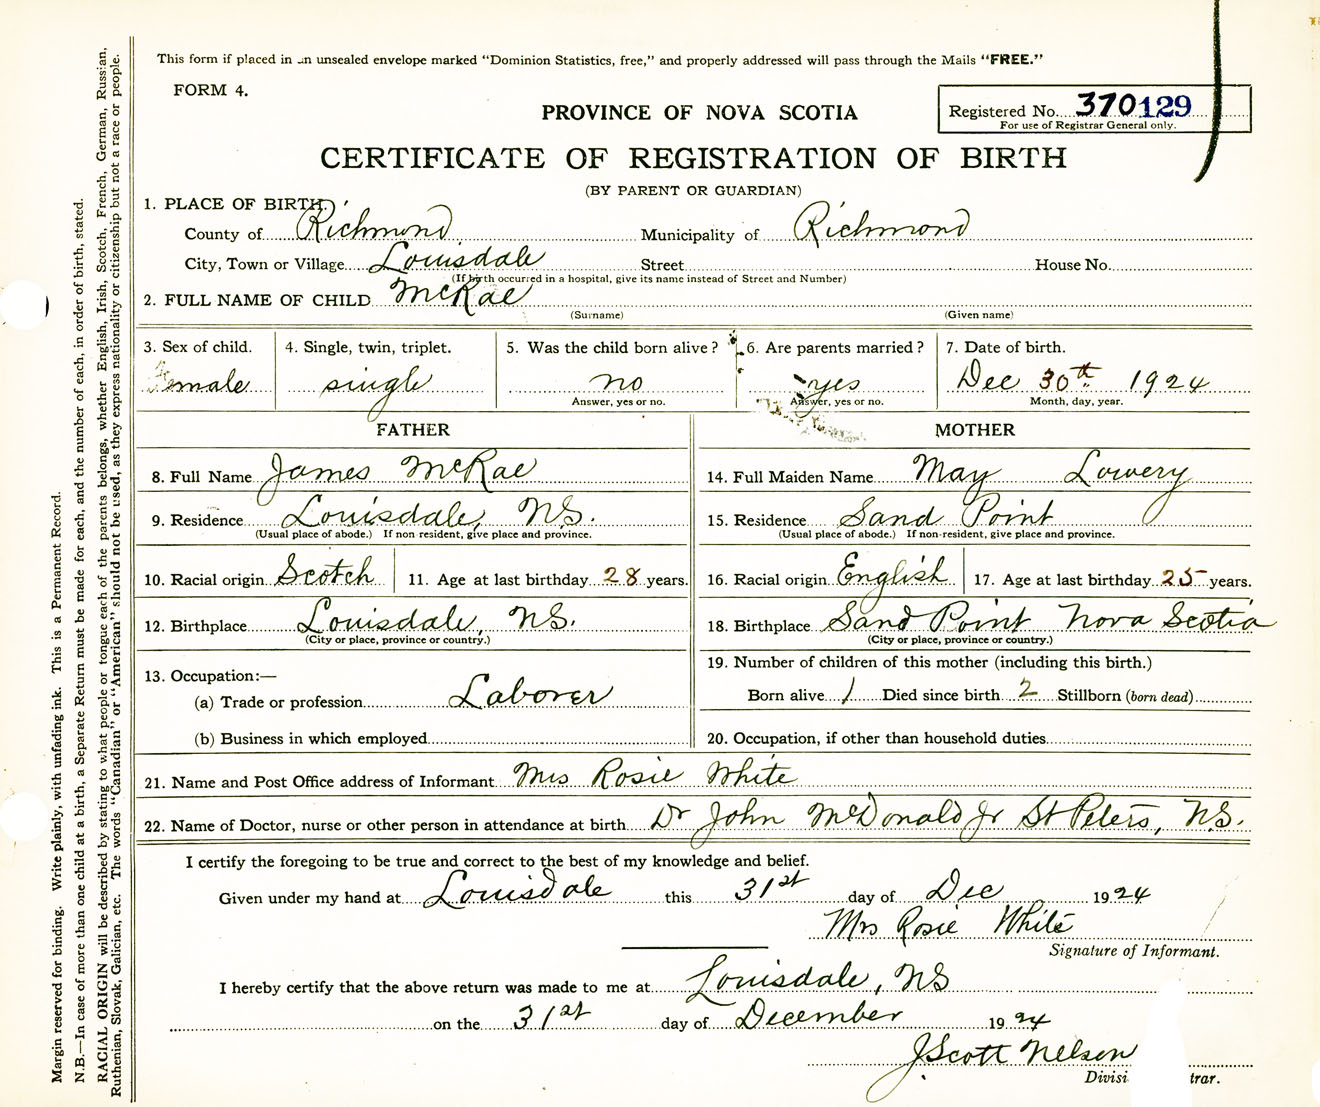 This form if placed in an unsealed envelope marked "Dominion Statistics, free," and properly addressed will pass through the Mails "FREE."
FORM 4.
PROVINCE OF NOVA SCOTIA
Registered No. 370129
For use of Registrar General only.
CERTIFICATE OF REGISTRATION OF BIRTH
(BY PARENT OR GUARDIAN)
1. PLACE OF BIRTH
County of Richmond Municipality of Richmond
City, Town or Village Louisdale Street House No.
(If birth occurred in a hospital, give its name instead of Street and Number)
2. FULL NAME OF CHILD McRae
(Surname) (Given name)
3. Sex of child. 4. Single, twin, triplet. 5. Was the child born alive? 6. Are parents married? 7. Date of birth.
Female single no yes Dec 30th 1924
Answer, yes or no. Answer, yes or no. Month, day, year.
FATHER MOTHER
8. Full Name James McRae 14. Full Maiden Name May Lowery
9. Residence Louisdale, N.S. 15. Residence Sand Point
(Usual place of abode.) If non-resident, give place and province. (Usual place of abode.) If non-resident, give place and province.
10. Racial origin Scotch 11. Age at last birthday 28 years. 16. Racial origin English 17. Age at last birthday 25 years.
12. Birthplace Louisdale, N.S. 18. Birthplace Sand Point Nova Scotia
(City or place, province or country.) (City or place, province or country.)
13. Occupation:— 19. Number of children of this mother (including this birth.)
(a) Trade or profession Laborer Born alive 1 Died since birth 2 Stillborn (born dead)
(b) Business in which employed 20. Occupation, if other than household duties
21. Name and Post Office address of Informant Mrs Rosie White
22. Name of Doctor, nurse or other person in attendance at birth Dr John McDonald Jr St Peters, N.S.
I certify the foregoing to be true and correct to the best of my knowledge and belief.
Given under my hand at Louisdale this 31st day of Dec 1924
Mrs Rosie White
Signature of Informant.
I hereby certify that the above return was made to me at Louisdale, NS
on the 31st day of December 1924
J. Scott Nelson
Divisi trar.
Margin reserved for binding. Write plainly, with unfading ink. This is a Permanent Record.
N.B.—In case of more than one child at a birth, a Separate Return must be made for each, and the number of each, in order of birth, stated.
RACIAL ORIGIN will be described by stating to what people or tongue each of the parents belongs, whether English, Irish, Scotch, French, German, Russian,
Ruthenian, Slovak, Galician, etc. The words "Canadian" or "American" should not be used, as they express nationality or citizenship but not a race or people.